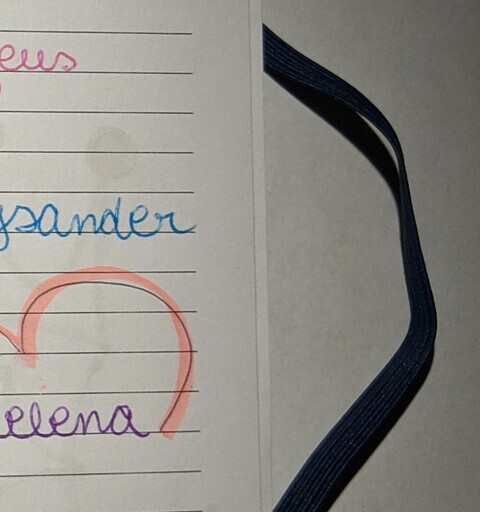 eus
ysander
elena